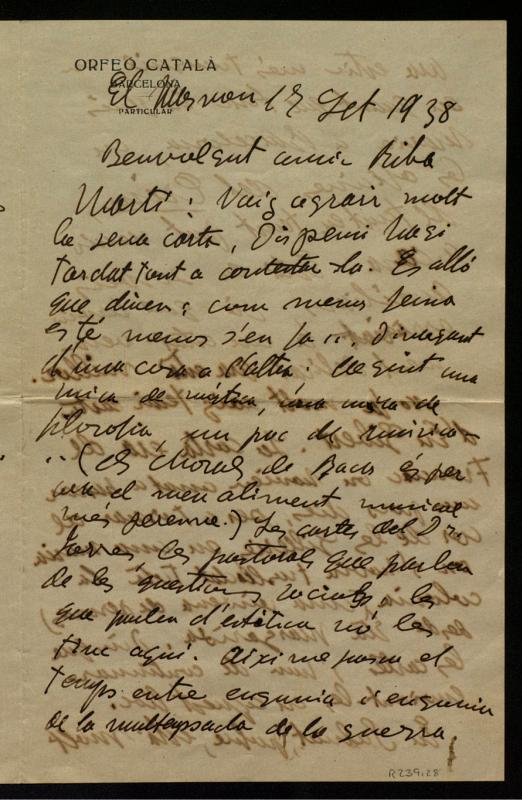 ORFEÓ CATALÀ
BARCELONA
PARTICULAR
El 1938
Benvolgut amic Riba
Martí: Vaig agrair molt
la seva carta, Dispensi hagi
tardat tant a contestar-la. És allò
que diuen: com menos feina
es té menos s'en fa... Divagant
d'una cosa a l'altra: llegint una
mica de mística, una mica de
filosofia, un poc de música
.. (els chorals de Bach és per
ara el meu aliment musical
més perenne.) Les cartes del Dr.
Torres, les pastorals que parlen
de les questions socials, les
que parlen d'estètica nó les
tinc aquí. Aixì me passa el
temps entre engunia i engunia
de la de la guerra
R239:28